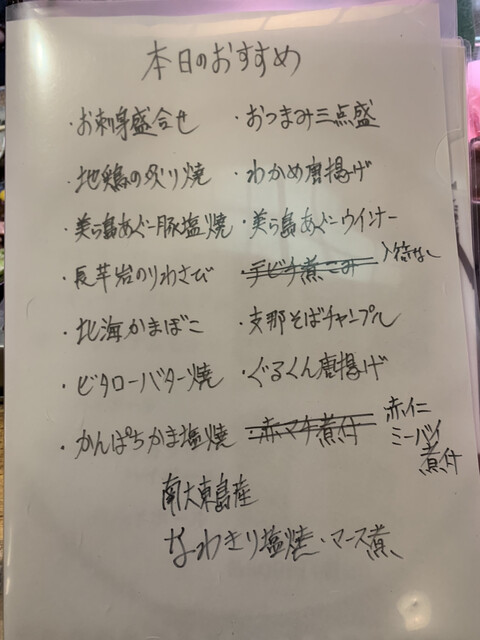 本日のおすすめ
・お刺身盛合せ
・おつまみ三点盛
・地鶏の炙り焼
・わかめ唐揚げ
・美ら島あぐー豚塩焼
・美ら島あぐーウインナー
・長芋岩のりわさび
・手ビチ煮こみ 入荷なし
・北海かまぼこ
・支那そばチャンプル
・ビタローバター焼
・ぐるくん唐揚げ
・かんぱちかま塩焼
・赤マチ煮付
赤イニ
ミーバイ
煮付
南大東島産
なわきり塩焼・マース煮